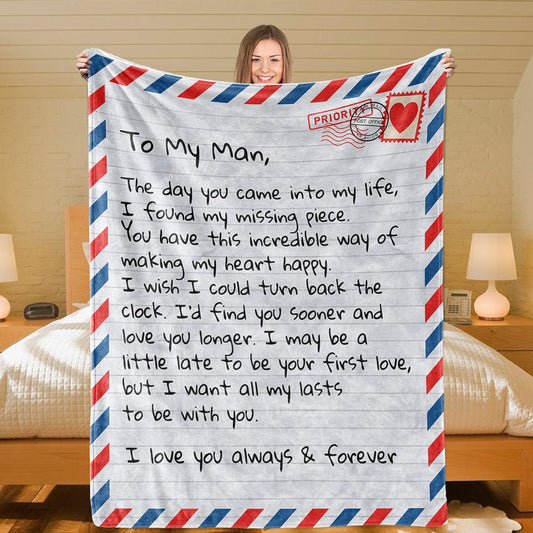 PRIORITY
POST OFFICE
To My Man,
The day you came into my life,
I found my missing piece.
You have this incredible way of
making my heart happy.
I wish I could turn back the
clock. I'd find you sooner and
love you longer. I may be a
little late to be your first love,
but I want all my lasts
to be with you.
I love you always & forever